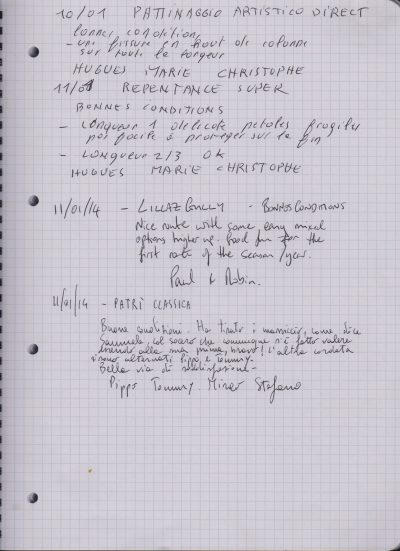 10/01 PATTINAGGIO ARTISTICO DIRECT
bonnes conditions
- une fissure en haut de colonne
sur toute la largeur
HUGUES MARIE CHRISTOPHE
11/01 REPENTANCE SUPER
BONNES CONDITIONS
- LONGUEUR 1 délicate pétales fragiles
pas facile à protéger sur la fin
- LONGUEUR 2/3 OK
HUGUES MARIE CHRISTOPHE
11/01/14 - LILLAZ GULLY - BONNES CONDITIONS
Nice route with some easy mixed
options higher up. Good fun for the
first route of the season/year.
Paul & Robin.
11/01/14 - PATRÌ CLASSICA
Buone condizioni. Ha tirato i massicci, come dice
Samuele, col socero che comunque s'è fatto valere
l'altra cordata
si sono alternati Pippo e Tommy.
Bella via di soddisfazione -
Pippo Tommy Mirco Stefano